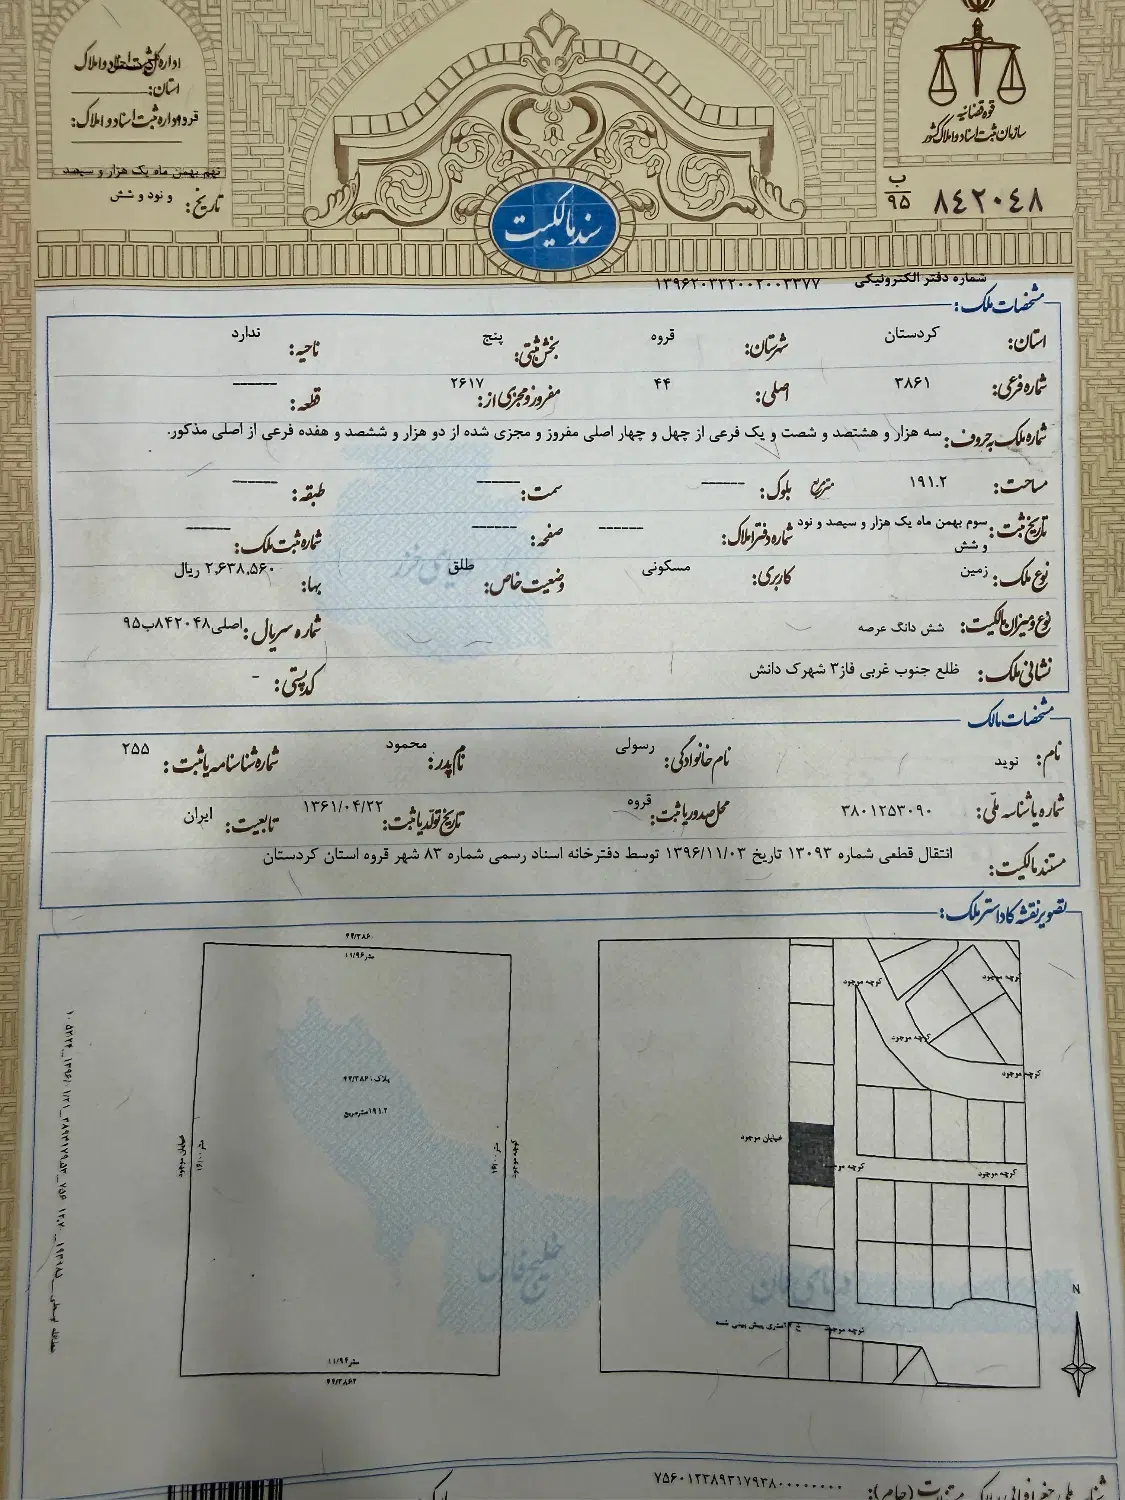 قوه قضائیه
سازمان ثبت اسناد و املاک کشور
ب
۹۵
۸۴۲۰۴۸
اداره کل ثبت اسناد و املاک
استان:
قروه اداره ثبت اسناد و املاک:
نهم بهمن ماه یک هزار و سیصد
و نود و شش
تاریخ:
سند مالکیت
شماره دفتر الکترونیکی ۱۳۹۶۲۰۳۲۲۰۰۲۰۰۳۳۷۷
مشخصات ملک:
استان: کردستان شهرستان: قروه بخش ثبتی: پنج ناحیه: ندارد
شماره فرعی: ۳۸۶۱ اصلی: ۴۴ مفروز و مجزی از: ۲۶۱۷ قطعه: ------
شماره ملک به حروف: سه هزار و هشتصد و شصت و یک فرعی از چهل و چهار اصلی مفروز و مجزی شده از دو هزار و ششصد و هفده فرعی از اصلی مذکور.
مساحت: ۱۹۱.۲ مترمربع بلوک: ------ سمت: ------ طبقه: ------
تاریخ ثبت: سوم بهمن ماه یک هزار و سیصد و نود و شش شماره دفتر املاک: ------ صفحه: ------ شماره ثبت ملک: ------
نوع ملک: زمین کاربری: مسکونی وضعیت خاص: طلق بها: ۲,۶۳۸,۵۶۰ ریال
نوع و میزان مالکیت: شش دانگ عرصه شماره سریال: اصلی۸۴۲۰۴۸ب۹۵
نشانی ملک: ظلع جنوب غربی فاز۳ شهرک دانش کدپستی: -
مشخصات مالک
نام: نوید نام خانوادگی: رسولی نام پدر: محمود شماره شناسنامه یا ثبت: ۲۵۵
شماره یا شناسه ملی: ۳۸۰۱۲۵۳۰۹۰ محل صدور یا ثبت: قروه تاریخ تولد یا ثبت: ۱۳۶۱/۰۴/۲۲ تابعیت: ایران
مستند مالکیت: انتقال قطعی شماره ۱۳۰۹۳ تاریخ ۱۳۹۶/۱۱/۰۳ توسط دفترخانه اسناد رسمی شماره ۸۳ شهر قروه استان کردستان
تصویر نقشه کاداستر ملک:
متر۱۱/۹۶
۱۹۱.۲مترمربع
خیابان موجود
متر۱۶/۰۰
متر۱۶/۰۰
کوچه موجود
متر۱۱/۹۴
۴۴/۳۸۶۲
کوچه موجود
کوچه موجود
کوچه موجود
کوچه موجود
خیابان موجود
کوچه موجود
کوچه موجود
کوچه موجود
N
خلیج فارس
دریای عمان
دریای خزر
۷۵۶۰۱۳۳۸۹۳۱۷۹۳۸۰۰۰۰۰۰۰۰۰